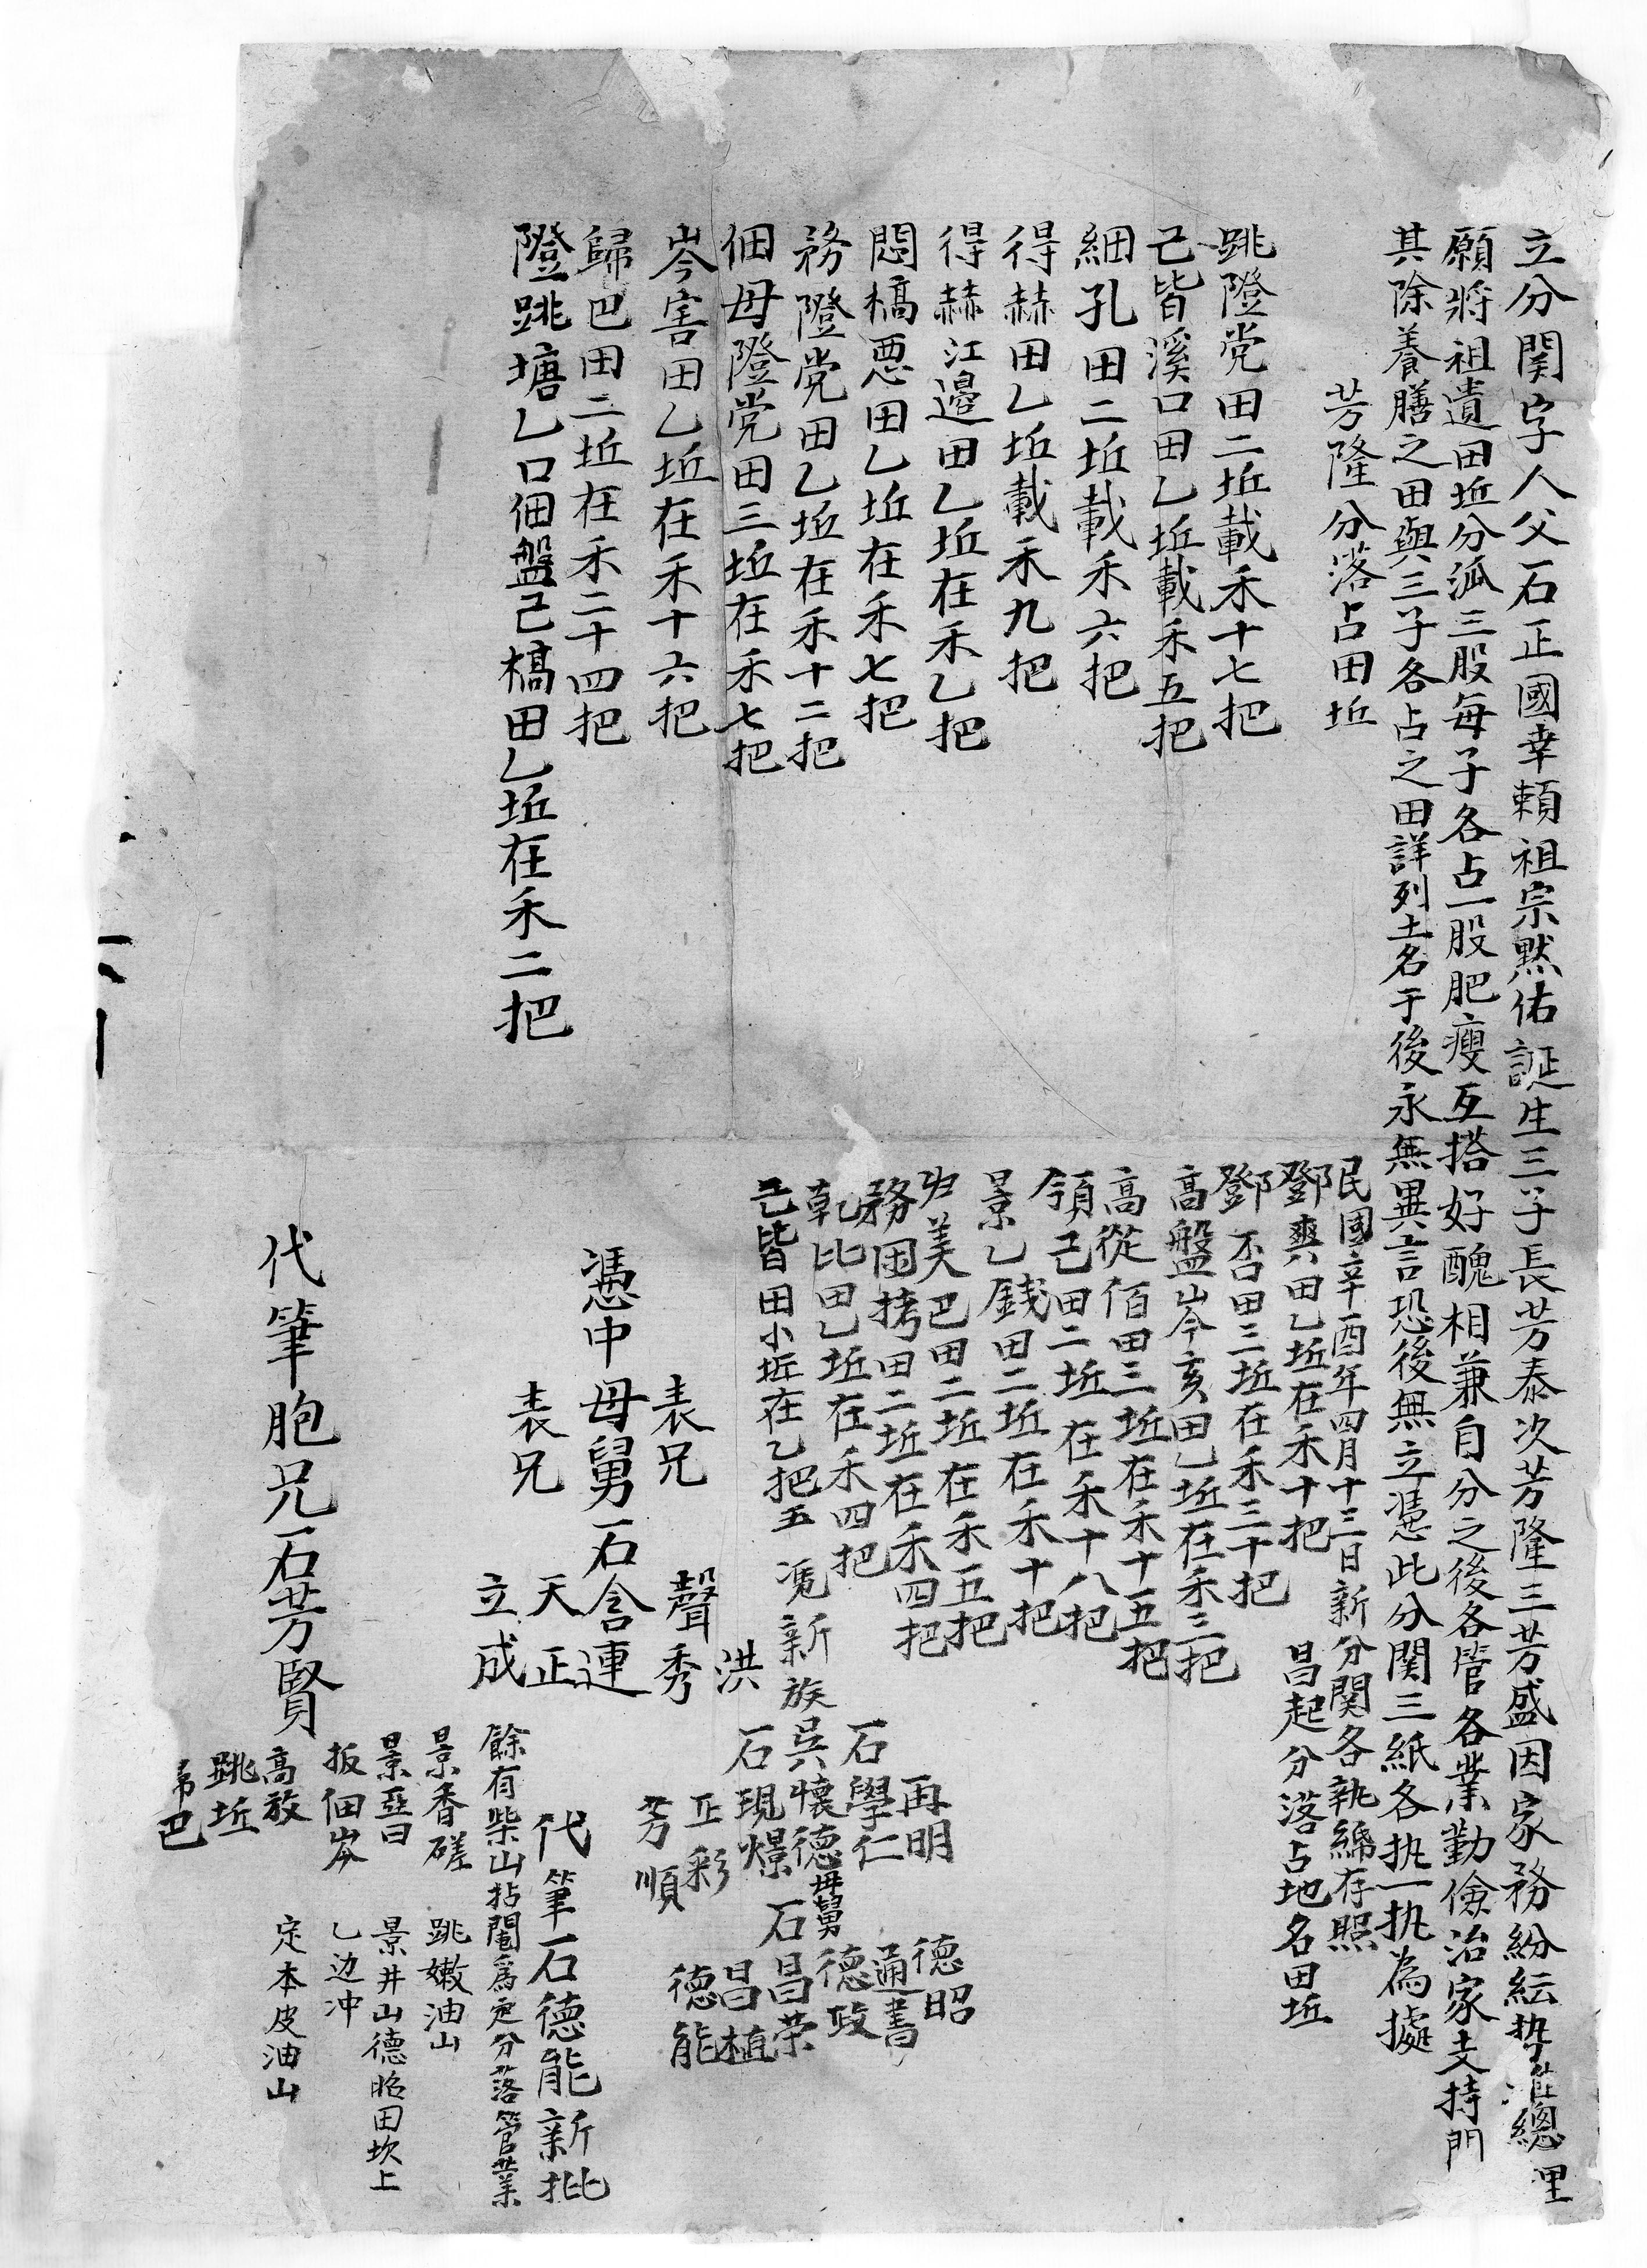 立分関字人父石正國幸賴祖宗黙佑誕生三子長芳泰次芳隆三芳盛因家務紛紜勢難總理
願將祖遺田坵分派三股每子各占一股肥瘦互搭好醜相兼自分之後各管各業勤儉治家支持門
其除養膳之田與三子各占之田詳列土名于後永無異言恐後無立憑此分関三紙各执一执為據
芳隆分落占田坵
跳隥党田二坵載禾十七把
己皆溪口田乙坵載禾五把
細孔田二坵載禾六把
得赫田乙坵載禾九把
得赫江邊田乙坵在禾乙把
悶槁悪田乙坵在禾七把
務隥党田乙坵在禾十二把
佃母隥党田三坵在禾七把
岑害田乙坵在禾十六把
歸巴田二坵在禾二十四把
隥跳塘乙口佃盤己槁田乙坵在禾二把
民國辛酉年四月十三日新分関各執綿存照
昌起分落占地名田坵
鄧爽田乙坵在禾十把
鄧否田三坵在禾三十把
高盤岑亥田乙坵在禾三把
高從佰田三坵在禾十五把
領己田二坵在禾十八把
景乙錢田二坵在禾十把
美巴田二坵在禾五把
務困拷田二坵在禾四把
乾比田乙坵在禾四把
己皆田小坵在乙把五
憑新族
再明
石學仁
吳懷德
石現燝
正彩
芳順
德昭
通書
母舅德政
石昌荣
昌植
德能
代筆石德能新批
憑中母舅石含連
表兄
聲秀
洪
表兄
天正
立成
餘有柴山拈鬮爲定分落管業
景香磋 跳嫩油山
景亞曰 景井山德昭田坎上
扳佃岑 乙边冲
高放 定本皮油山
跳坵
帛巴
代筆胞兄石芳賢